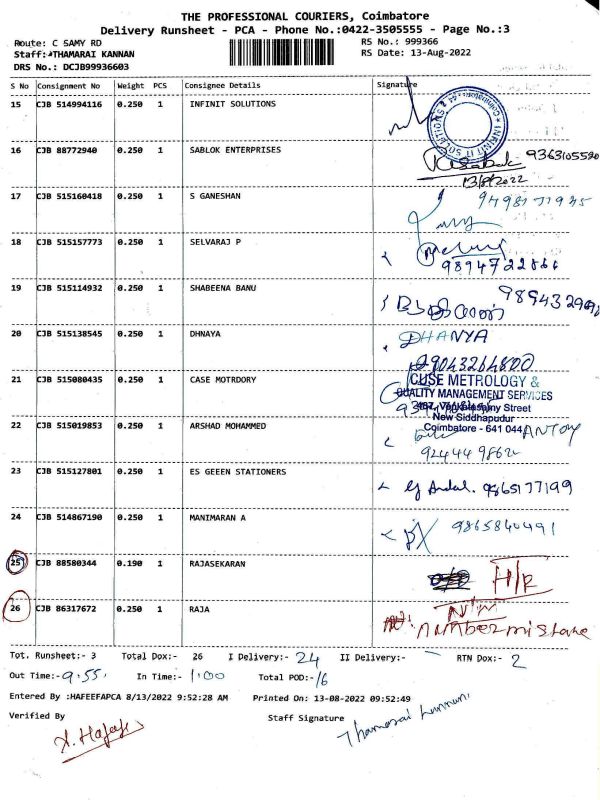 THE PROFESSIONAL COURIERS, Coimbatore
Delivery Runsheet - PCA - Phone No.:0422-3505555 - Page No.:3
Route: C SAMY RD
RS No.: 999366
Staff:-THAMARAI KANNAN
RS Date: 13-Aug-2022
DRS No.: DCJB99936603
S No Consignment No Weight PCS Consignee Details Signature
15 CJB 514994116 0.250 1 INFINIT SOLUTIONS
16 CJB 88772940 0.250 1 SABLOK ENTERPRISES 9363105580
13/8/2022
17 CJB 515160418 0.250 1 S GANESHAN
18 CJB 515157773 0.250 1 SELVARAJ P
9894722866
19 CJB 515114932 0.250 1 SHABEENA BANU
20 CJB 515138545 0.250 1 DHNAYA DHANYA
9043264800
21 CJB 515080435 0.250 1 CASE MOTRDORY CUSE METROLOGY &
QUALITY MANAGEMENT SERVICES
Street
New Siddhapudur
22 CJB 515019853 0.250 1 ARSHAD MOHAMMED Coimbatore - 641 044 ANTONY
23 CJB 515127801 0.250 1 ES GEEEN STATIONERS 9865177199
24 CJB 514867190 0.250 1 MANIMARAN A 9865840491
25 CJB 88580344 0.190 1 RAJASEKARAN H/R
26 CJB 86317672 0.250 1 RAJA
Number mistake
Tot. Runsheet:- 3 Total Dox:- 26 I Delivery:- 24 II Delivery:- RTN Dox:- 2
Out Time:- 9.55 In Time:- 1.00 Total POD:- 16
Entered By :HAFEEFAPCA 8/13/2022 9:52:28 AM Printed On: 13-08-2022 09:52:49
Verified By Staff Signature
Thamarai kannan